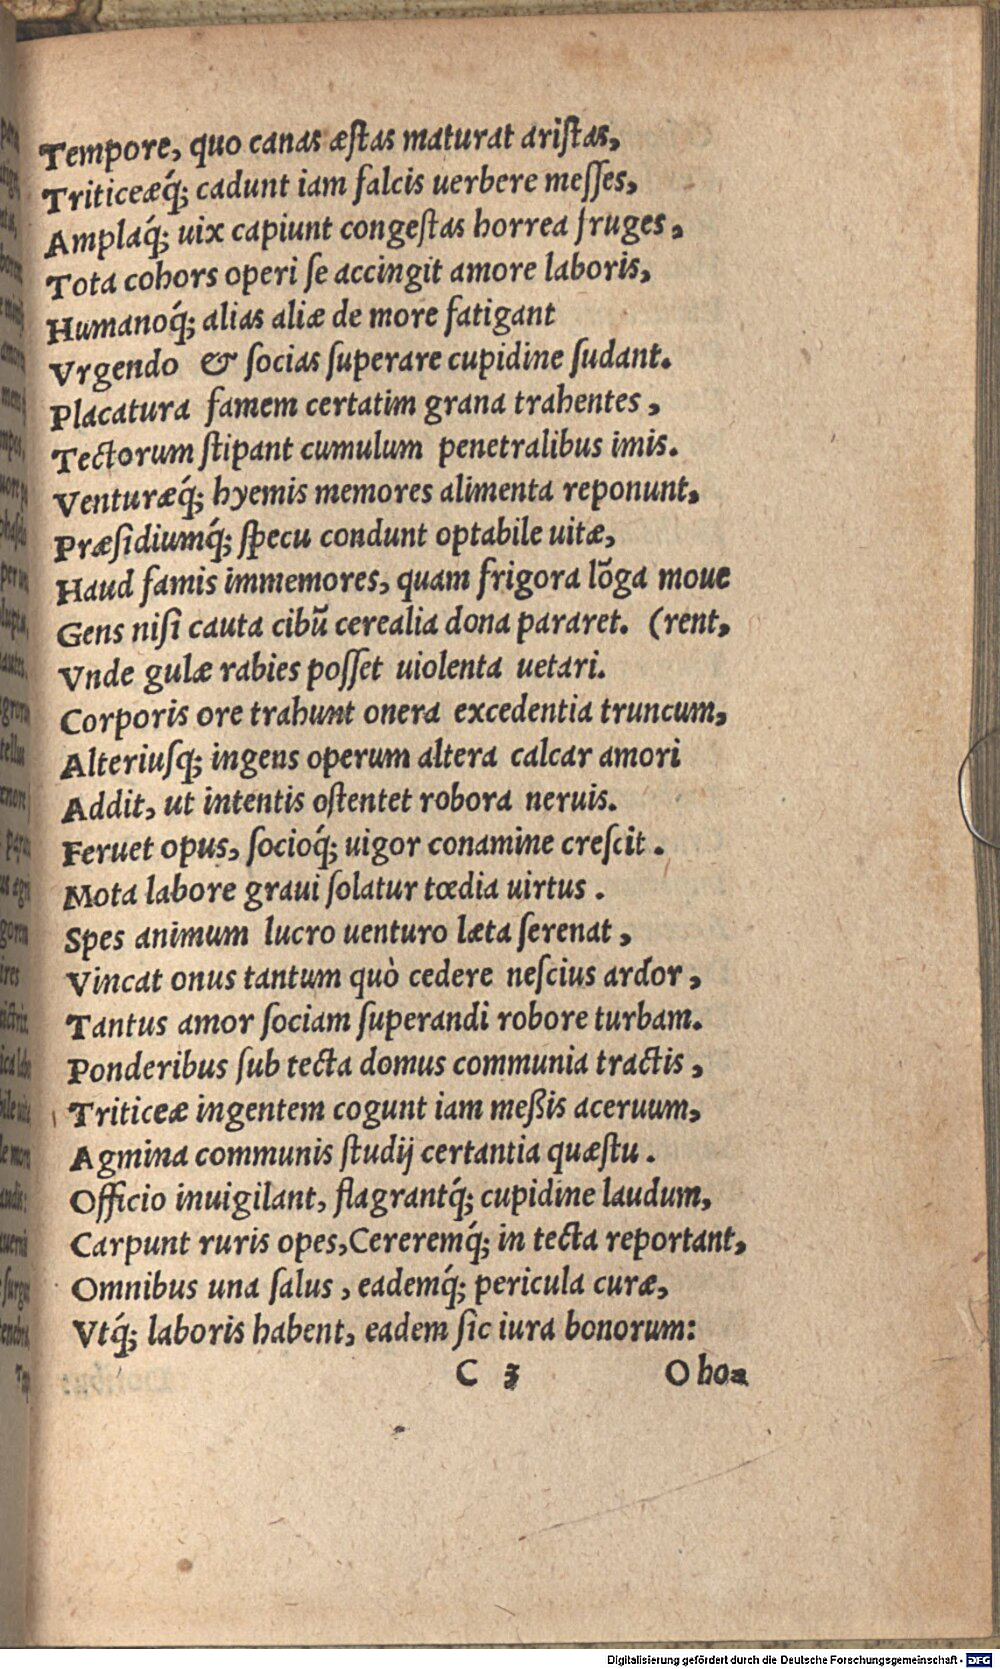 Tempore, quo canas æſtas maturat ariſtas,
Triticeæq́; cadunt iam falcis uerbere meſſes,
Amplaq́; uix capiunt congeſtas horrea fruges,
Tota cohors operi ſe accingit amore laboris,
Humanoq́; alias aliæ de more fatigant
Vrgendo & ſocias ſuperare cupidine ſudant.
Placatura famem certatim grana trahentes,
Tectorum ſtipant cumulum penetralibus imis.
Venturæq́; hyemis memores alimenta reponunt,
Præſidiumq́; ſpecu condunt optabile uitæ,
Haud famis immemores, quam frigora lōga moue
Gens niſi cauta cibū cerealia dona pararet. (rent,
Vnde gulæ rabies poſſet uiolenta uetari.
Corporis ore trahunt onera excedentia truncum,
Alteriuſq; ingens operum altera calcar amori
Addit, ut intentis oſtentet robora neruis.
Feruet opus, ſocioq́; uigor conamine creſcit.
Mota labore graui ſolatur tœdia uirtus.
Spes animum lucro uenturo læta ſerenat,
Vincat onus tantum quò cedere neſcius ardor,
Tantus amor ſociam ſuperandi robore turbam.
Ponderibus ſub tecta domus communia tractis,
Triticeæ ingentem cogunt iam meßis aceruum,
Agmina communis ſtudij certantia quæſtu.
Officio inuigilant, flagrantq́; cupidine laudum,
Carpunt ruris opes, Cereremq́; in tecta reportant,
Omnibus una ſalus, eademq́; pericula curæ,
Vtq́; laboris habent, eadem ſic iura bonorum:
C 3 O bo=
Digitalisierung gefördert durch die Deutsche Forschungsgemeinschaft - DFG